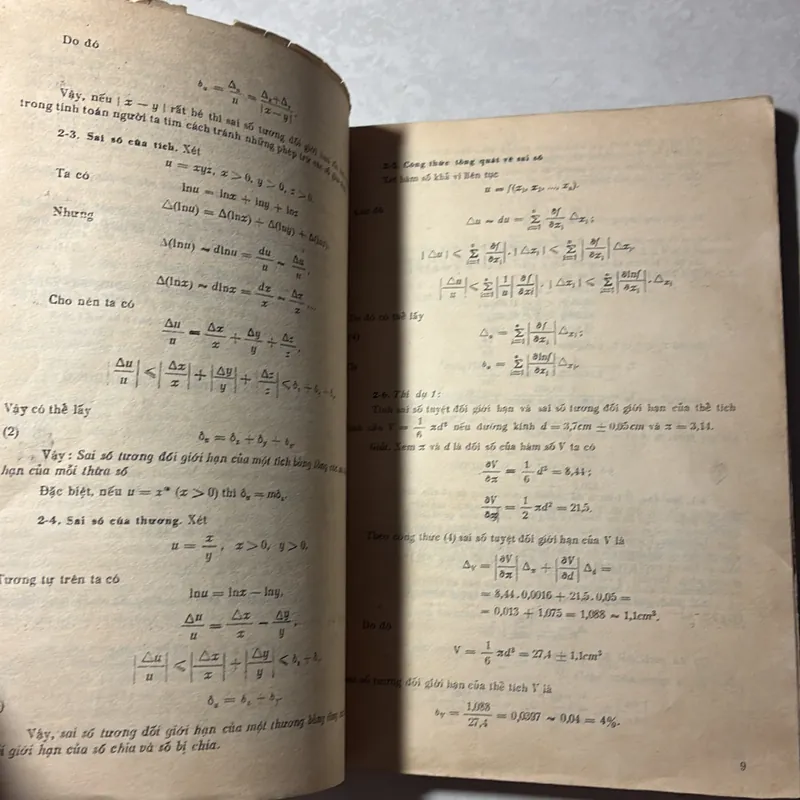 Do đó
δᵤ = Δᵤ/u = (Δₓ+Δᵧ)/|x−y|.
Vậy, nếu | x − y | rất bé thì sai số tương đối giới hạn
trong tính toán người ta tìm cách tránh những phép trừ các số
2-3. Sai số của tích. Xét
u = xyz, x > 0, y > 0, z > 0.
Ta có
lnu = lnx + lny + lnz
△(lnu) = Δ(lnx) + Δ(lny) + Δ(lnz),
Nhưng
Δ(lnu) ~ dlnu = du/u ~ Δu/u,
Δ(lnx) ~ dlnx = dx/x ~ Δx/x ...
Cho nên ta có
Δu/u = Δx/x + Δy/y + Δz/z,
|Δu/u| ⩽ |Δx/x| + |Δy/y| + |Δz/z| ⩽ δₓ + δᵧ +
Vậy có thể lấy
(2)
Vậy : Sai số tương đối giới hạn của một tích bằng tổng các
hạn của mỗi thừa số
Đặc biệt, nếu u = xᵐ (x > 0) thì δᵤ = mδₓ.
2-4. Sai số của thương. Xét
u = x/y, x > 0, y > 0.
Tương tự trên ta có
lnu = lnx − lny,
△u/u = △x/x − △y/y.
|△u/u| ⩽ |△x/x| + |△y/y| ⩽ δₓ + δᵧ
Vậy, sai số tương đối giới hạn của một thương bằng tổng
giới hạn của số chia và số bị chia.
2-5. Công thức tổng quát về sai số
Xét hàm số khả vi liên tục
u = f(x₁, x₂, ..., xₙ).
△u ~ du = Σ ∂f/∂xᵢ △xᵢ ;
| △u | ⩽ Σ |∂f/∂xᵢ| . | △xᵢ | ⩽ Σ |∂f/∂xᵢ| △xᵢ,
|△u/u| ⩽ Σ |1/u| |∂f/∂xi| . | △xᵢ | ⩽ Σ |∂lnf/∂xᵢ| . △xᵢ
Do đó có thể lấy
△ᵤ = Σ |∂f/∂xᵢ| △xᵢ ;
δᵤ = Σ |∂lnf/∂xᵢ| △xᵢ.
2-6. Thí dụ 1 :
Tính sai số tuyệt đối giới hạn và sai số tương đối giới hạn của thể tích
cầu V = 1/6 πd³ nếu đường kính d = 3,7cm ± 0,05cm và π = 3,14.
Giải. Xem π và d là đối số của hàm số V ta có
∂V/∂π = 1/6 d³ = 8,44 ;
∂V/∂ = 1/2 πd² = 21,5.
Theo công thức (4) sai số tuyệt đối giới hạn của V là
Δᵥ = |∂V/∂π| Δπ + |∂V/∂d| Δd =
= 8,44 . 0,0016 + 21,5 . 0,05 =
= 0,013 + 1,075 = 1,088 ~ 1,1cm³.
Do đó
V = 1/6 πd³ = 27,4 ± 1,1cm³
số tương đối giới hạn của thể tích V là
δᵥ = 1,088/27,4 = 0,0397 ~ 0,04 = 4%.
9